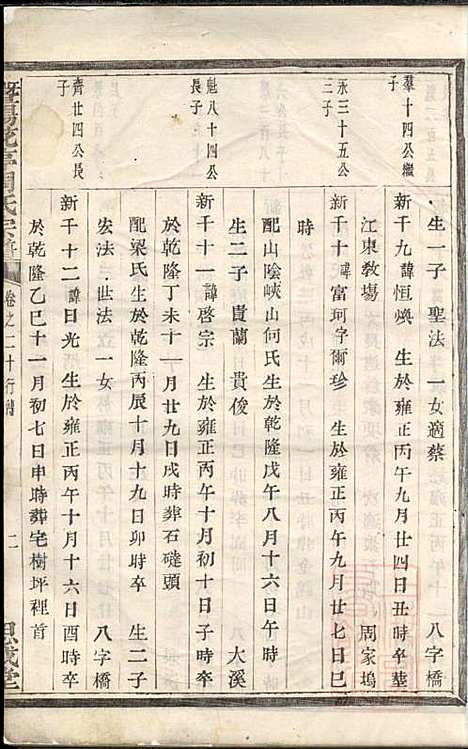 生一子聖法一女適蔡 八字橋
羣十四公繼子
新千九諱恒煥 生於雍正丙午九月廿四日丑時卒葬
江東教塲 周家塢
永三十五公三子
新千十諱富珂字爾珍 生於雍正丙午九月廿七日巳
時
配山陰峽山何氏生於乾隆戊午八月十六日午時
生二子貴蘭 貴俊 大溪
魁八十四公長子
新千十一諱啓宗 生於雍正丙午十月初十日子時卒
於乾隆丁未十一月廿九日戌時葬石礳頭
配梁氏生於乾隆丙辰十月十九日卯時卒 生二子
宏法 世法一女 八字橋
齊廿四公長子
新千十二諱日光 生於雍正丙午十月十六日酉時卒
於乾隆乙巳十一月初七日申時葬宅樹坪裡首
周氏宗譜 卷之二十行傳 二 思成堂